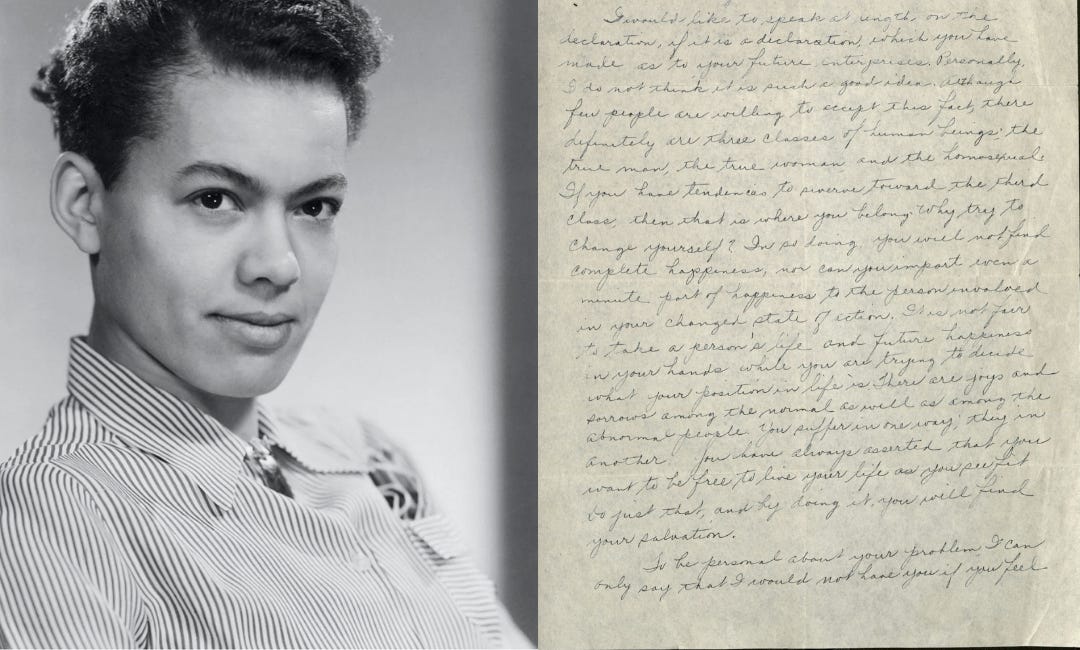 I would like to speak at length on the
declaration, if it is a declaration, which you have
made as to your future enterprises. Personally,
I do not think it is such a good idea. Although
few people are willing to accept this fact, there
definitely are three classes of human beings: the
true man, the true woman and the homosexual.
If you have tendencies to swerve toward the third
class, then that is where you belong. Why try to
change yourself? In so doing, you will not find
complete happiness, nor can you impart even a
minute part of happiness to the person involved
in your changed state of action. It is not fair
to take a person's life and future happiness
in your hands while you are trying to decide
what your position in life is. There are joys and
sorrows among the normal as well as among the
abnormal people. You suffer in one way, they in
another. You have always asserted that you
want to be free to live your life as you see fit
Do just that, and by doing it, you will find
your salvation.
To be personal about your problem I can
only say that I would not have you if you feel